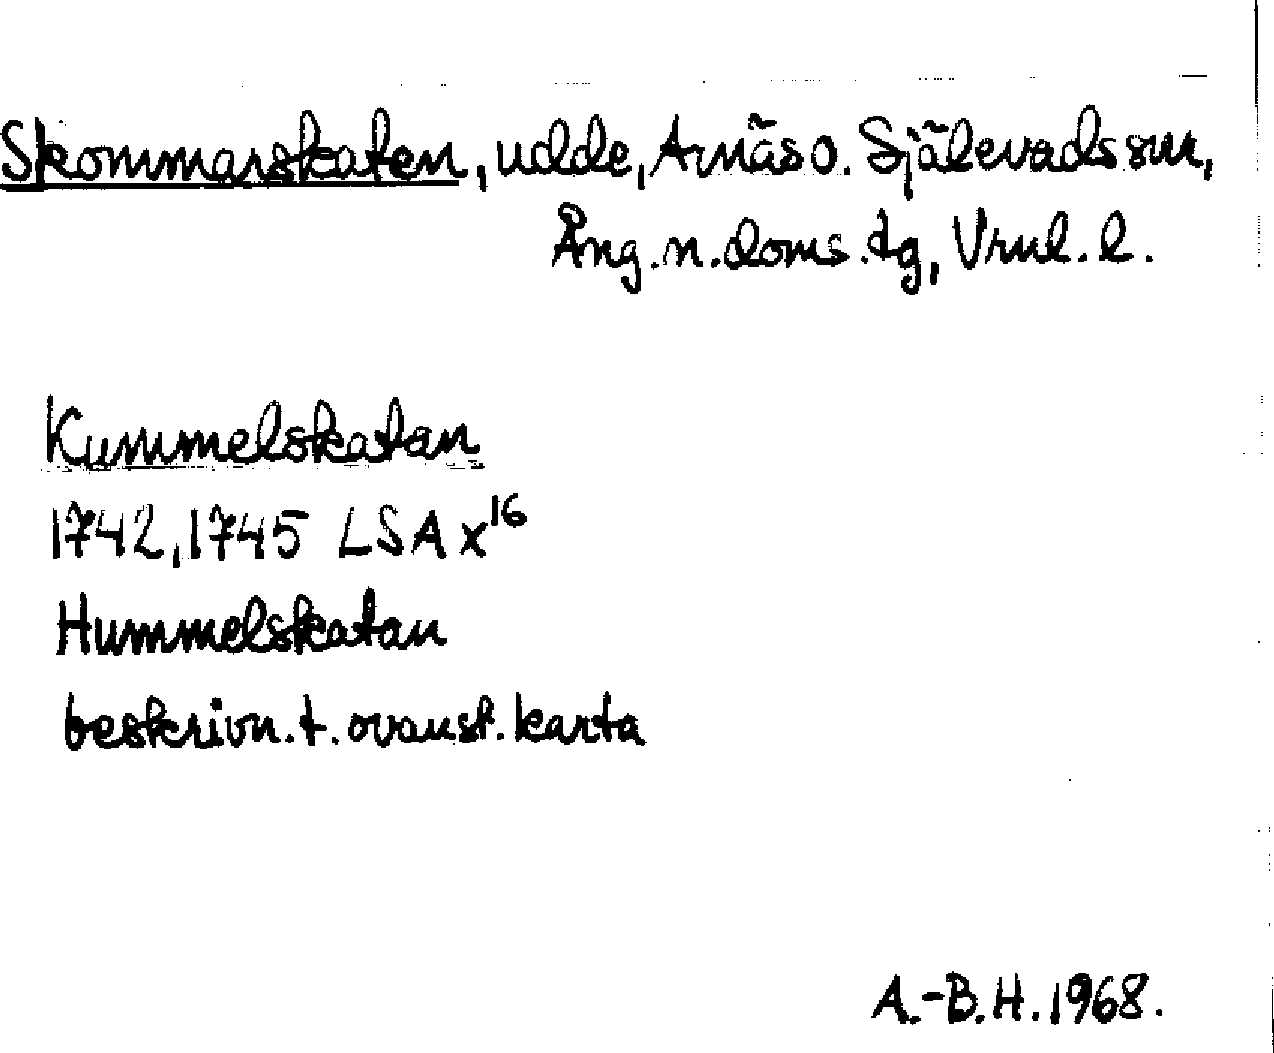 Skommarskaten, udde, Arnäs o. Själevads snr,
Ång. n. doms. tg, Vnul. l.
Kummelskatan
1742, 1745 LSA X16
Hummelskatan
beskrivn. t. ovanst. karta
A.-B.H. 1968.